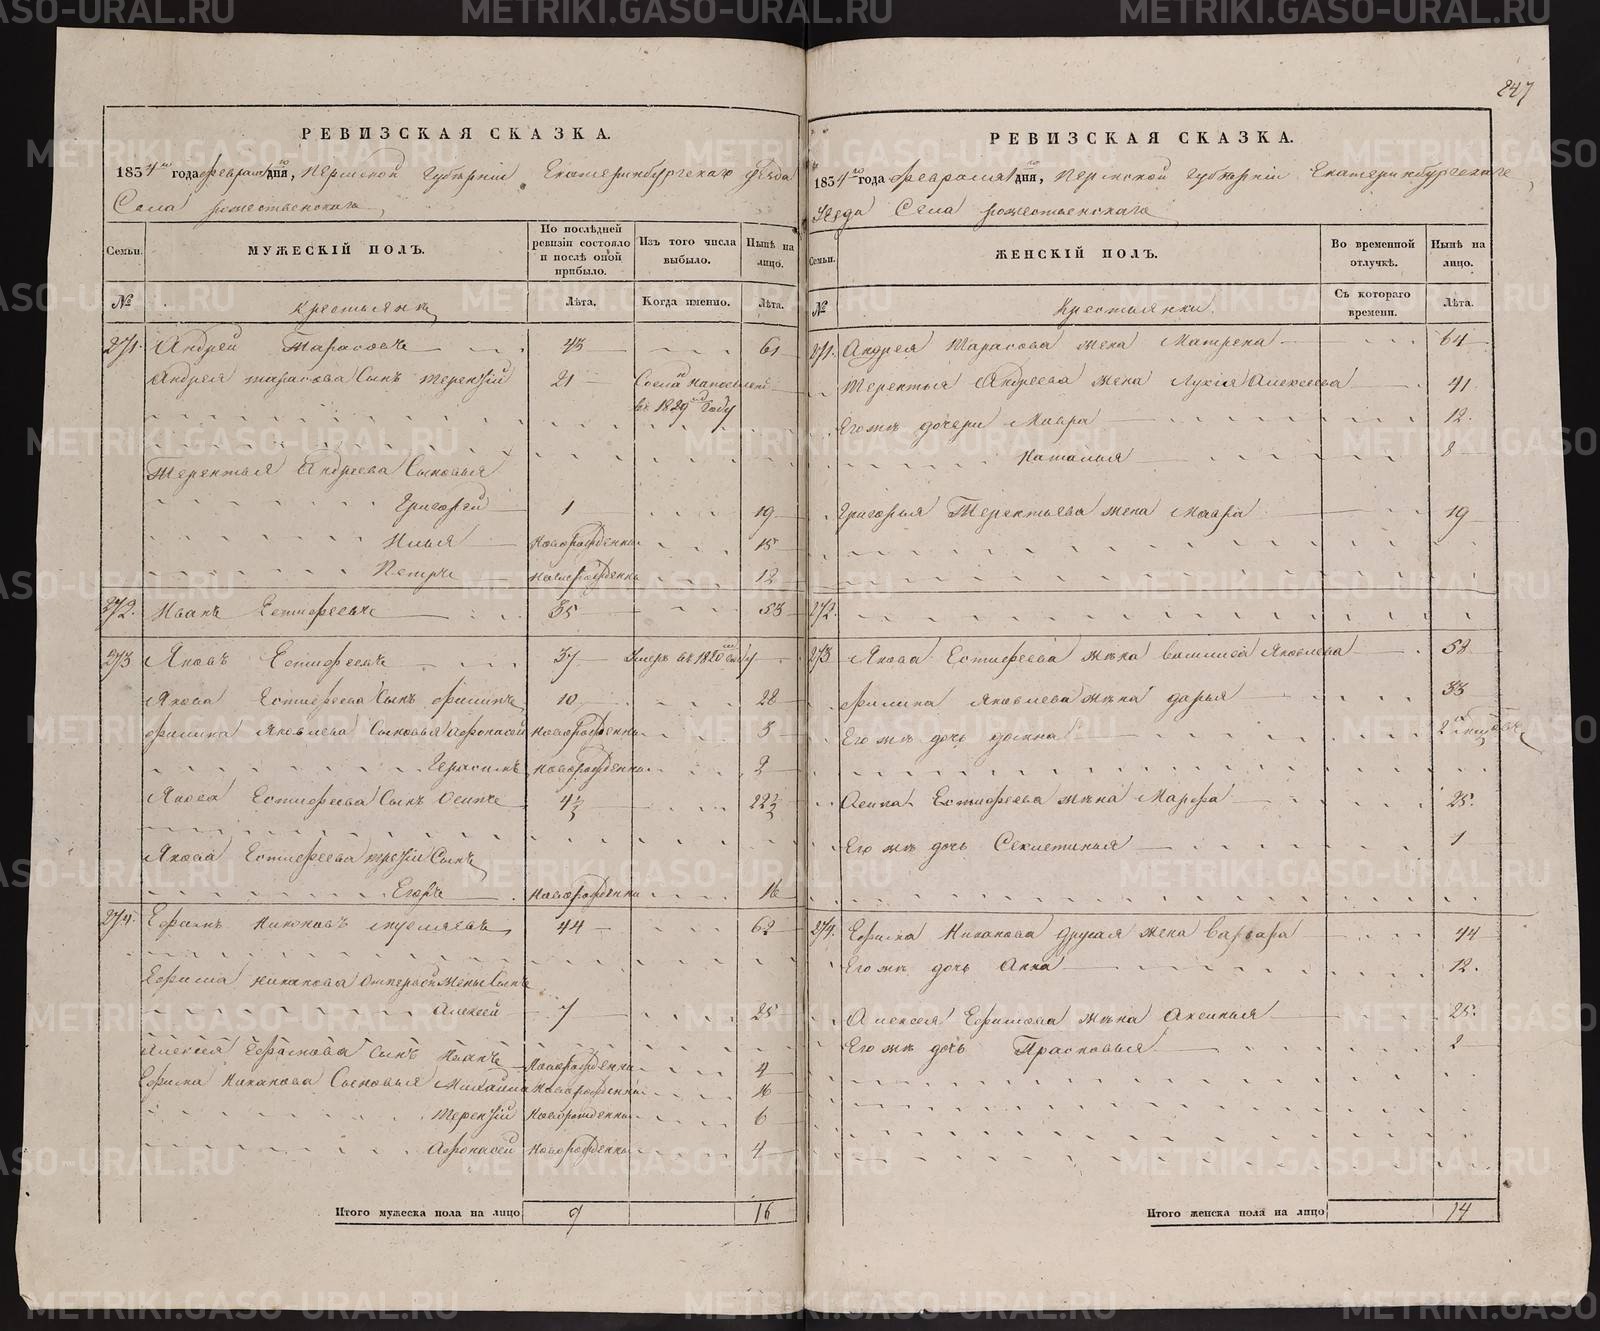 247
РЕВИЗСКАЯ СКАЗКА.
1834 года февраля дня, Пермской Губѣрніи Екатеринбургскаго уѣзда
Села рожественскаго
Семьи. МУЖЕСКІЙ ПОЛЪ. По послѣдней ревизіи состояло и послѣ оной прибыло. Изъ того числа выбыло. Нынѣ на лицо.
№ Крестьянъ Лѣта. Когда именно. Лѣта.
271. Андрей Тарасовъ 43 61
Андрея тарасова Сынъ терентій 21 в 1829 году
Терентья Андреева Сыновья
Григорей 1 19
Илья новорожденны 15
Петръ новорожденны 12
272. Иванъ Естифеевъ 35 53
273 Яковъ Естифеевъ 37 Умеръ въ 1820 году
Якова Естифеева Сынъ филипъ 10 28
филипа Яковлева Сыновья афонасей новорожденны 5
Герасимъ новорожденны 2
Якова Естифеева Сынъ Осипъ 4½ 22½
Якова Естифеева третій Сынъ
Егоръ новорожденны 16
274. Ефимъ Никоновъ 44 62
Ефима никонова отпервой жены Сынъ
Алексей 7 25
Алексея Ефимова Сынъ Иванъ новорожденны 4
Ефима Никанова Сыновья Михайла новорожденны 16
терентій новорожденны 6
афонасей новорожденны 4
Итого мужеска пола на лицо 9 16
РЕВИЗСКАЯ СКАЗКА.
1834 года февраля дня, Пермской Губѣрніи Екатеринбургскаго
Уезда Села рожественскаго
Семьи. ЖЕНСКІЙ ПОЛЪ. Во временной отлучкѣ. Нынѣ на лицо.
№ Крестьянки. Съ котораго времени. Лѣта.
271. Андрея Тарасова жена Матрена 64
Терентья Андреева жена Лукія Алексеева 41
Его жъ дочери Мавра 12
Наталья 8
Григорья Терентьева жена Мавра 19
272.
273 Якова Естифеева жена василиса Яковлева 58
филипа Яковлева жена дарья 33
Его жъ дочь 2
Осипа Естифеева жена Марфа 25
Его жъ дочь Секлетинья 1
274. Ефима Никанова другая жена Варвара 44
Его жъ дочь Анна 12.
Алексея Ефимова жена Аксинья 25
Его жъ дочь Прасковья 2
Итого женска пола на лицо 14
METRIKI.GASO-URAL.RU